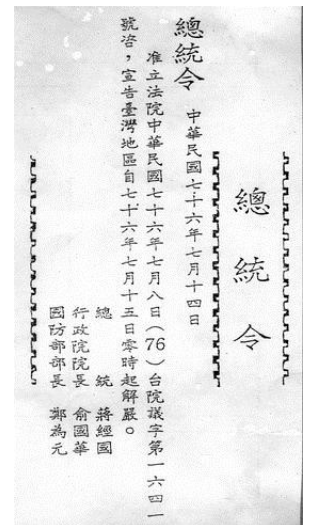 總統令
總統令　中華民國七十六年七月十四日
准立法院中華民國七十六年七月八日（76）台院議字第一六四一
號咨，宣告臺灣地區自七十六年七月十五日零時起解嚴。
總　　統　蔣經國
行政院院長　俞國華
國防部部長　鄭為元